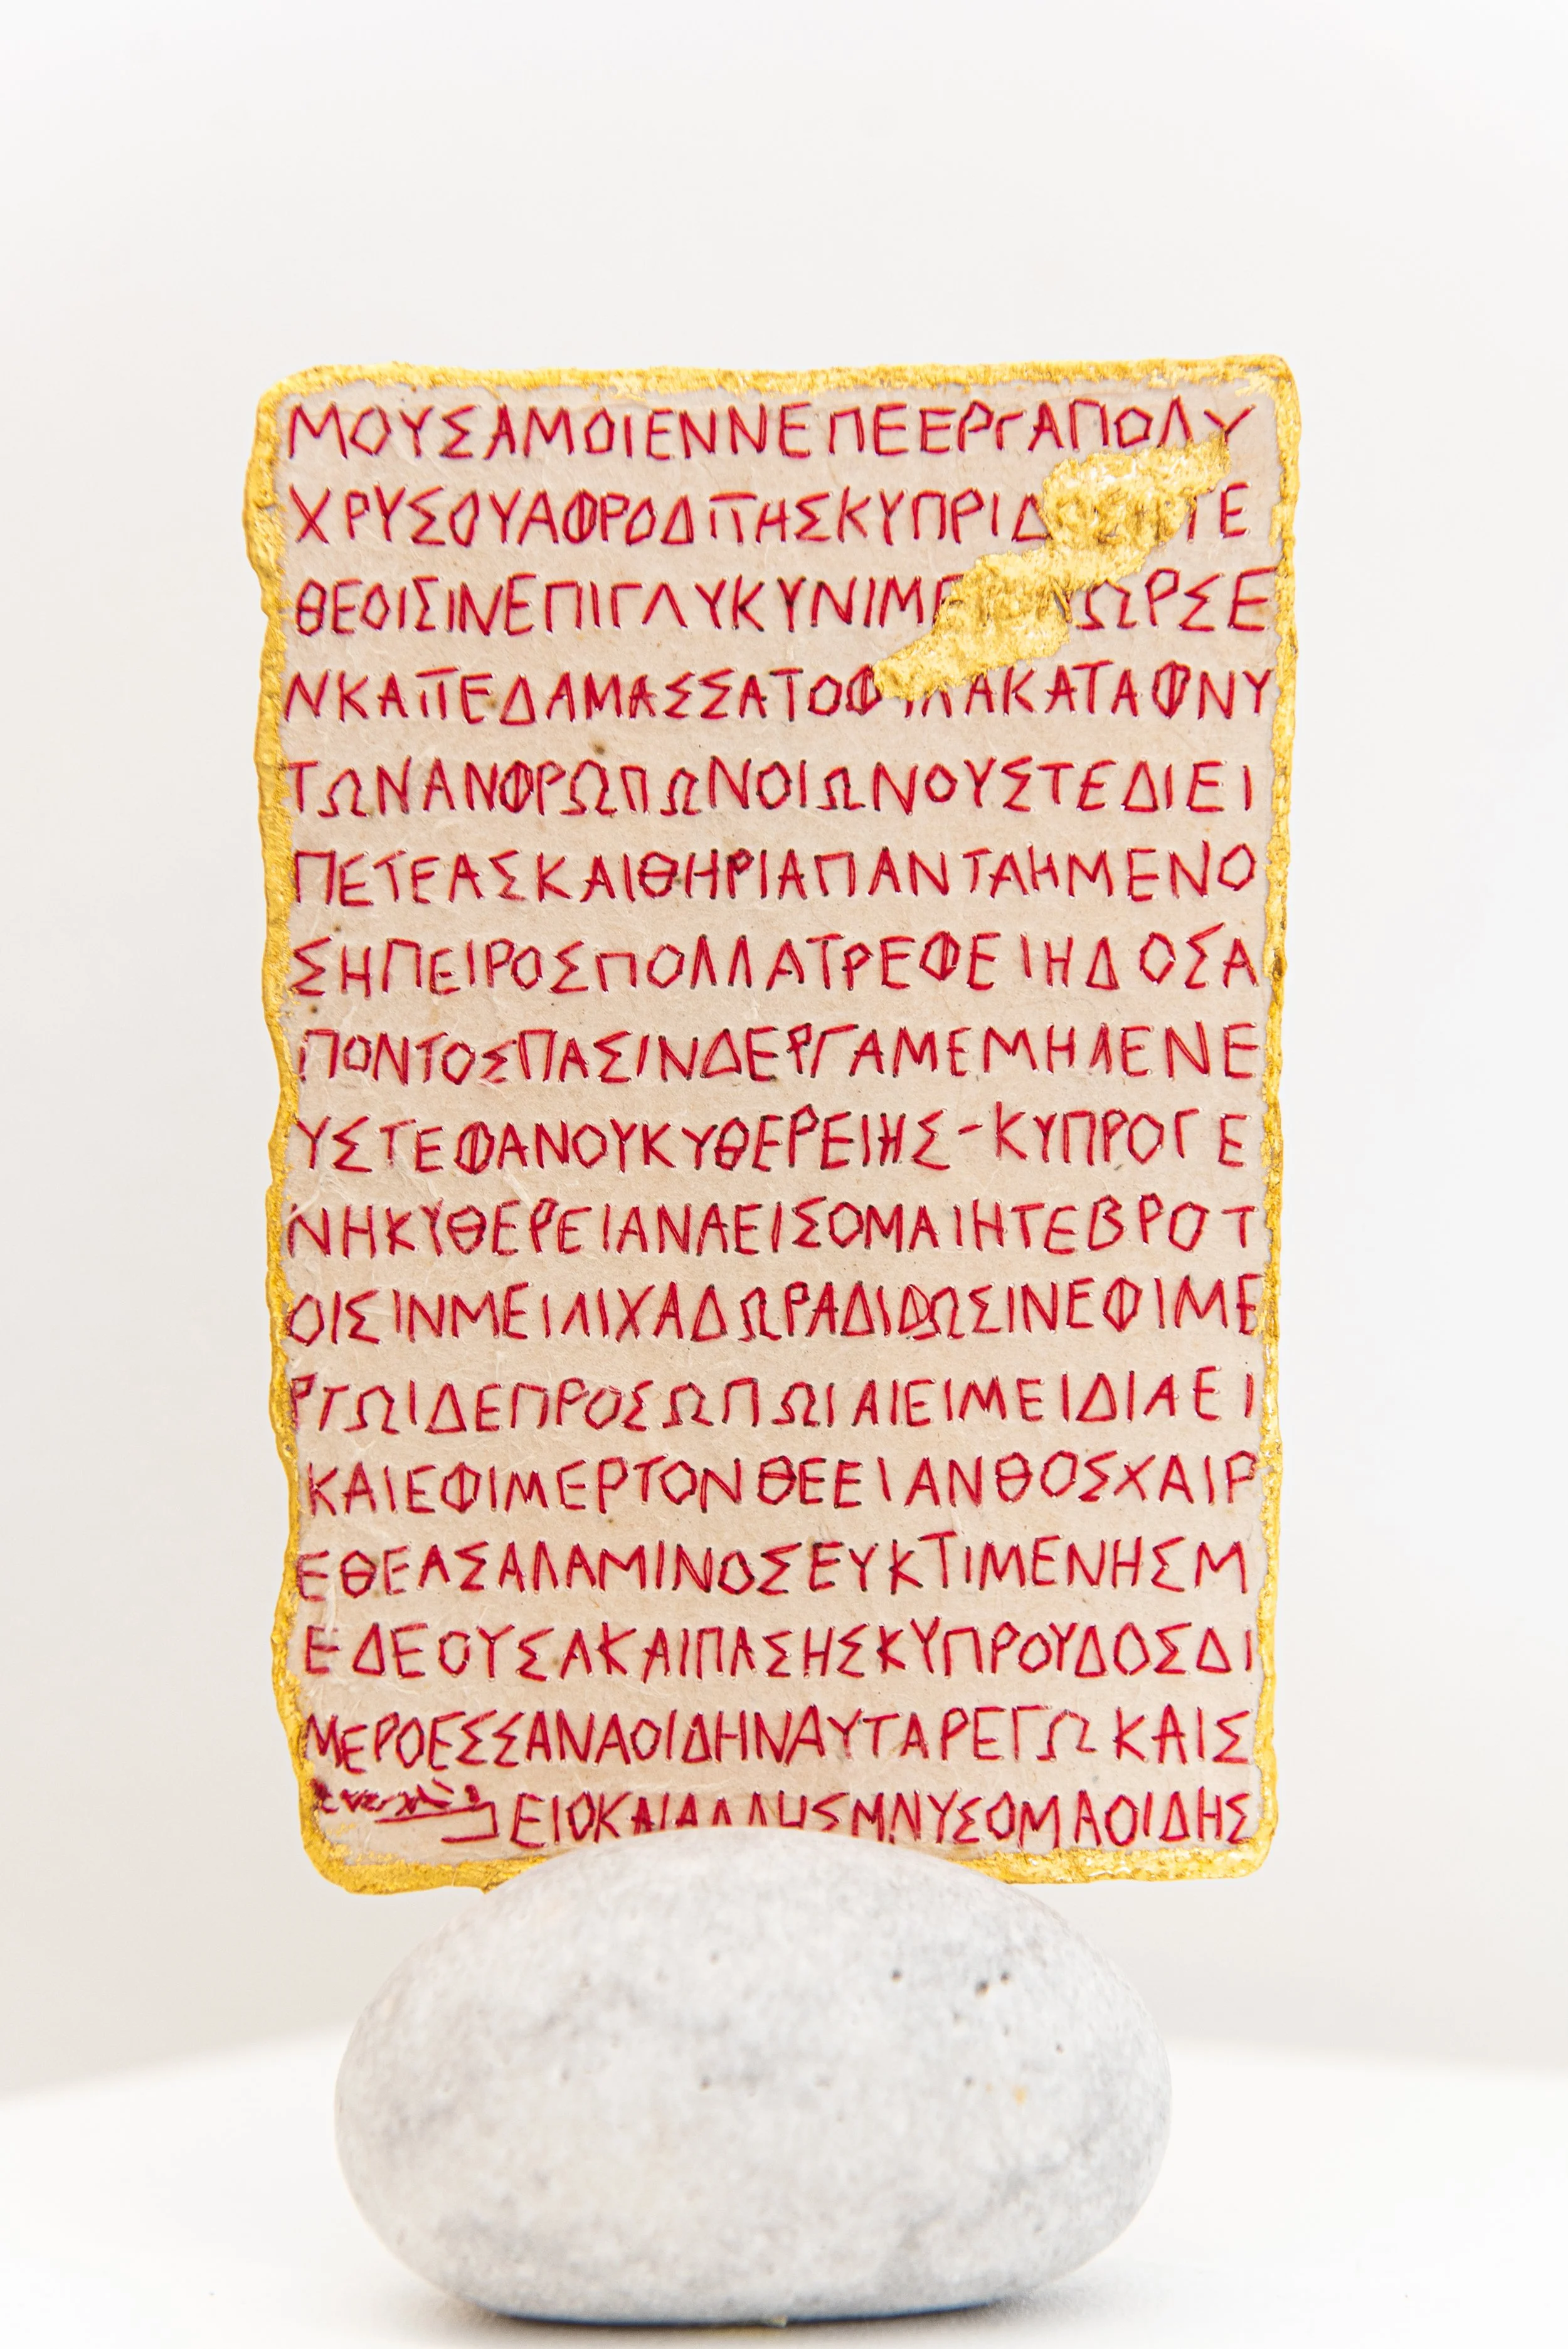 ΜΟΥΣΑΜΟΙΕΝΝΕΠΕΕΡΓΑΠΟΛΥ
ΧΡΥΣΟΥΑΦΡΟΔΙΤΗΣΚΥΠΡΙΔ ΤΕ
ΘΕΟΙΣΙΝΕΠΙΓΛΥΚΥΝΙΜΕ ΩΡΣΕ
ΝΚΑΙΤΕΔΑΜΑΣΣΑΤΟΦΥΛΑΚΑΤΑΦΝΥ
ΤΩΝΑΝΦΡΩΠΩΝΟΙΩΝΟΥΣΤΕΔΙΕΙ
ΠΕΤΕΑΣΚΑΙΘΗΡΙΑΠΑΝΤΑΗΜΕΝΟ
ΣΗΠΕΙΡΟΣΠΟΛΛΑΤΡΕΦΕΙΗΔΟΣΑ
ΠΟΝΤΟΣΠΑΣΙΝΔΕΡΓΑΜΕΜΗΛΕΝΕ
ΥΣΤΕΦΑΝΟΥΚΥΘΕΡΕΙΗΣ-ΚΥΠΡΟΓΕ
ΝΗΚΥΘΕΡΕΙΑΝΑΕΙΣΟΜΑΙΗΤΕΒΡΟΤ
ΟΙΣΙΝΜΕΙΛΙΧΑΔΩΡΑΔΙΔΩΣΙΝΕΦΙΜΕ
ΡΤΩΙΔΕΠΡΟΣΩΠΩΙΑΙΕΙΜΕΙΔΙΑΕΙ
ΚΑΙΕΦΙΜΕΡΤΟΝΘΕΕΙΑΝΘΟΣΧΑΙΡ
ΕΘΕΑΣΑΛΑΜΙΝΟΣΕΥΚΤΙΜΕΝΗΣΜ
ΕΔΕΟΥΣΑΚΑΙΠΑΣΗΣΚΥΠΡΟΥΔΟΣΔΙ
ΜΕΡΟΕΣΣΑΝΑΟΙΔΗΝΑΥΤΑΡΕΓΩΚΑΙΣ
ΕΙΟΚΑΙΑΛΛΗΣΜΝΥΣΟΜΑΟΙΔΗΣ